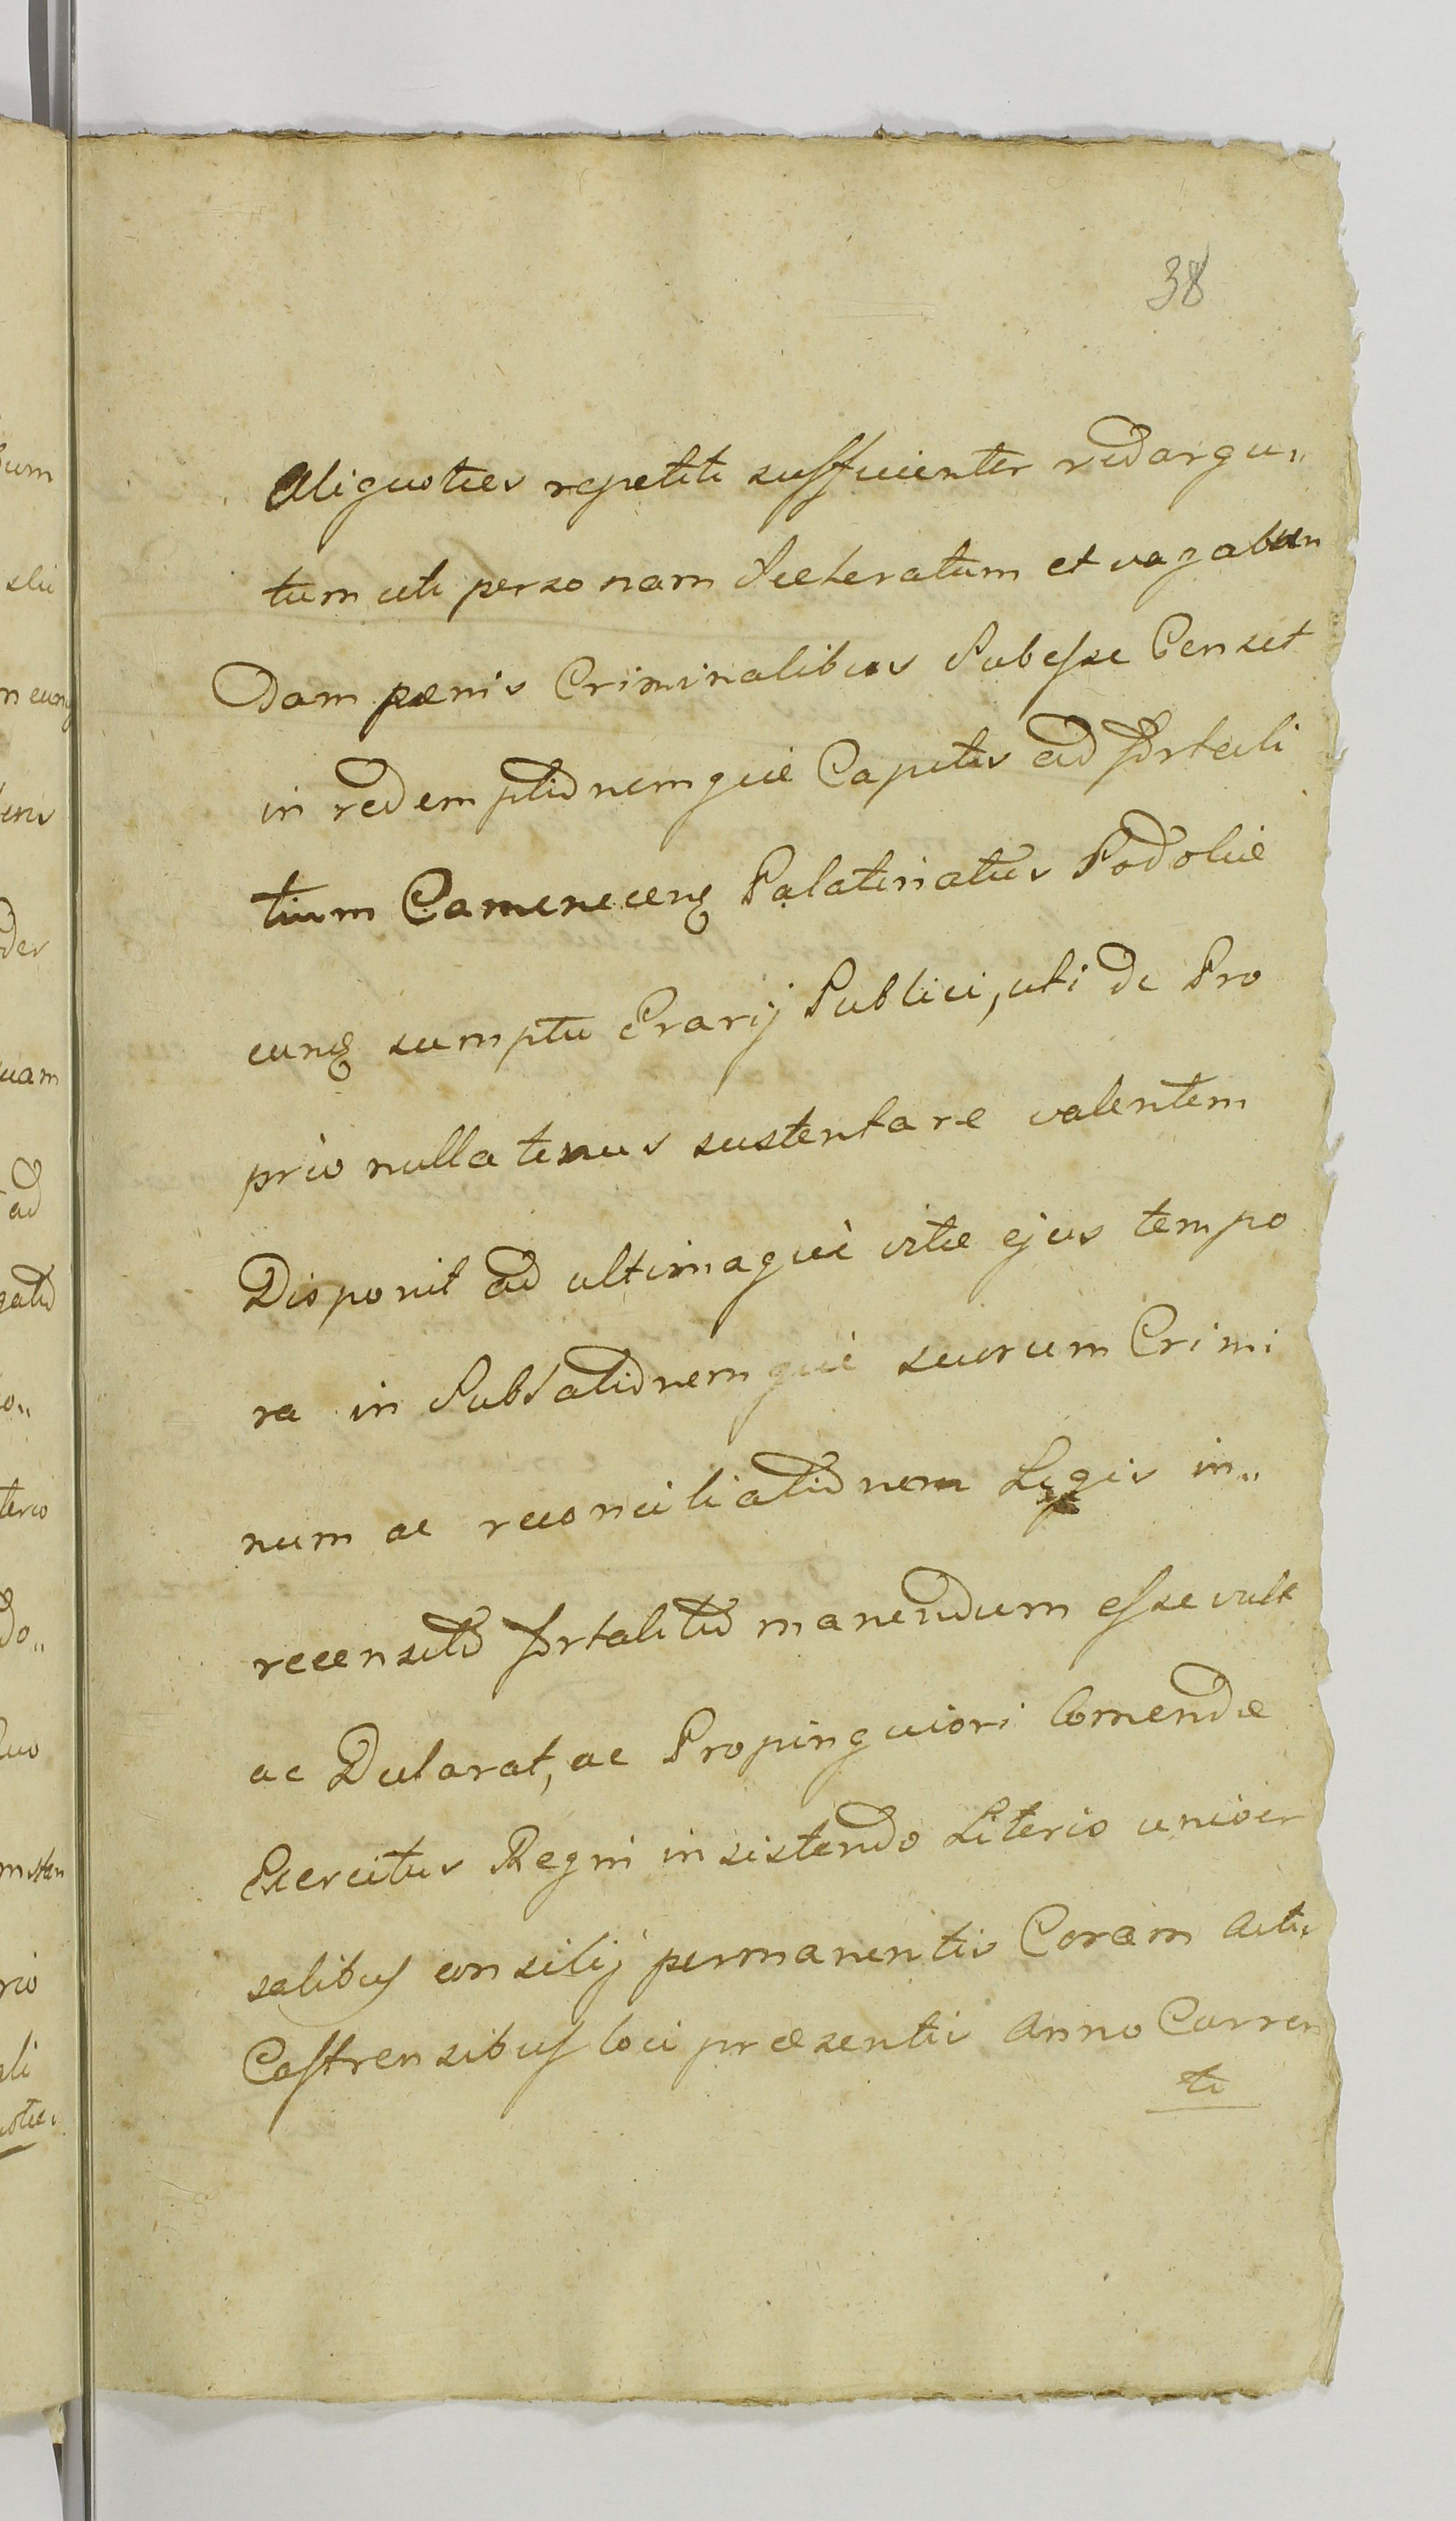 38
Aliquoties repetiti sufficienter redargu„
tum uti personam Sceleratam et vagabun
Dam pænis Criminalibus Subesse Censet
in redemptionemque Capitis ad fortali
tium Camenecens Palatinatus Podoliæ
cung sumptu Erarij Publici, uti de Pro
prio nullatenus sustentare valentem
Disponit ad ultimaque vitæ ejus tempo
ra in Subsationemque suorum Crimi
num ac reconciliationem Legis in„
recensito fortalitio manendum esse vult
ac Declarat, ac Propinquiori Comendæ
Exercitus Regni insistendo Literis univer
salibus consilij permanentis Coram Actis
Castrensibus loci præsentis Anno Curren
ti